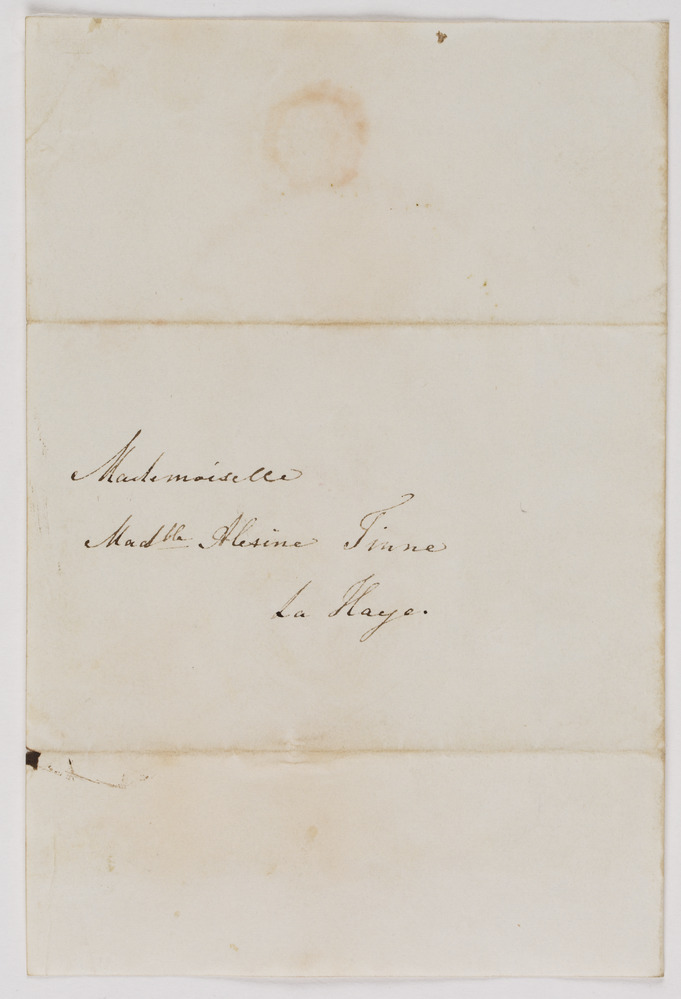 Mademoiselle
Mad^lle Alexine Tinne
La Haye.